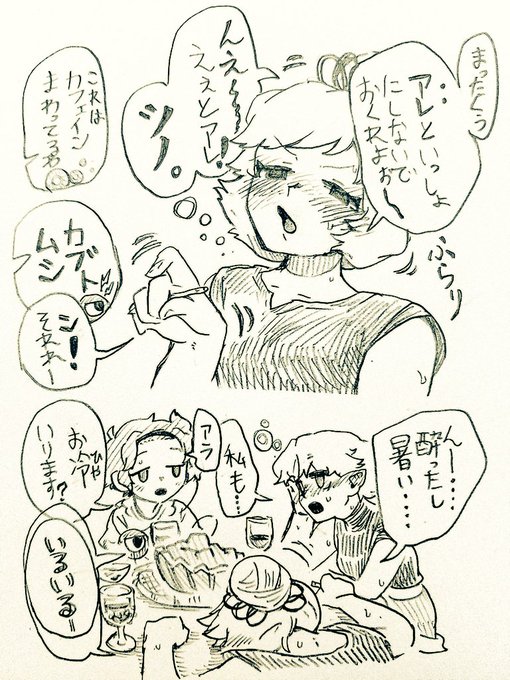 まったくう
アレといっしょ
にしないで
おくれよぉ〜
んえ〜〜
ええとアレ!
ツノ。
ふらり
これは
カフェイン
まわってるわ
カブト
ムシ
ン!
それれー
んー……
酔ったし
暑い……
私も…
アラ
ひや
いります?
いるいるー